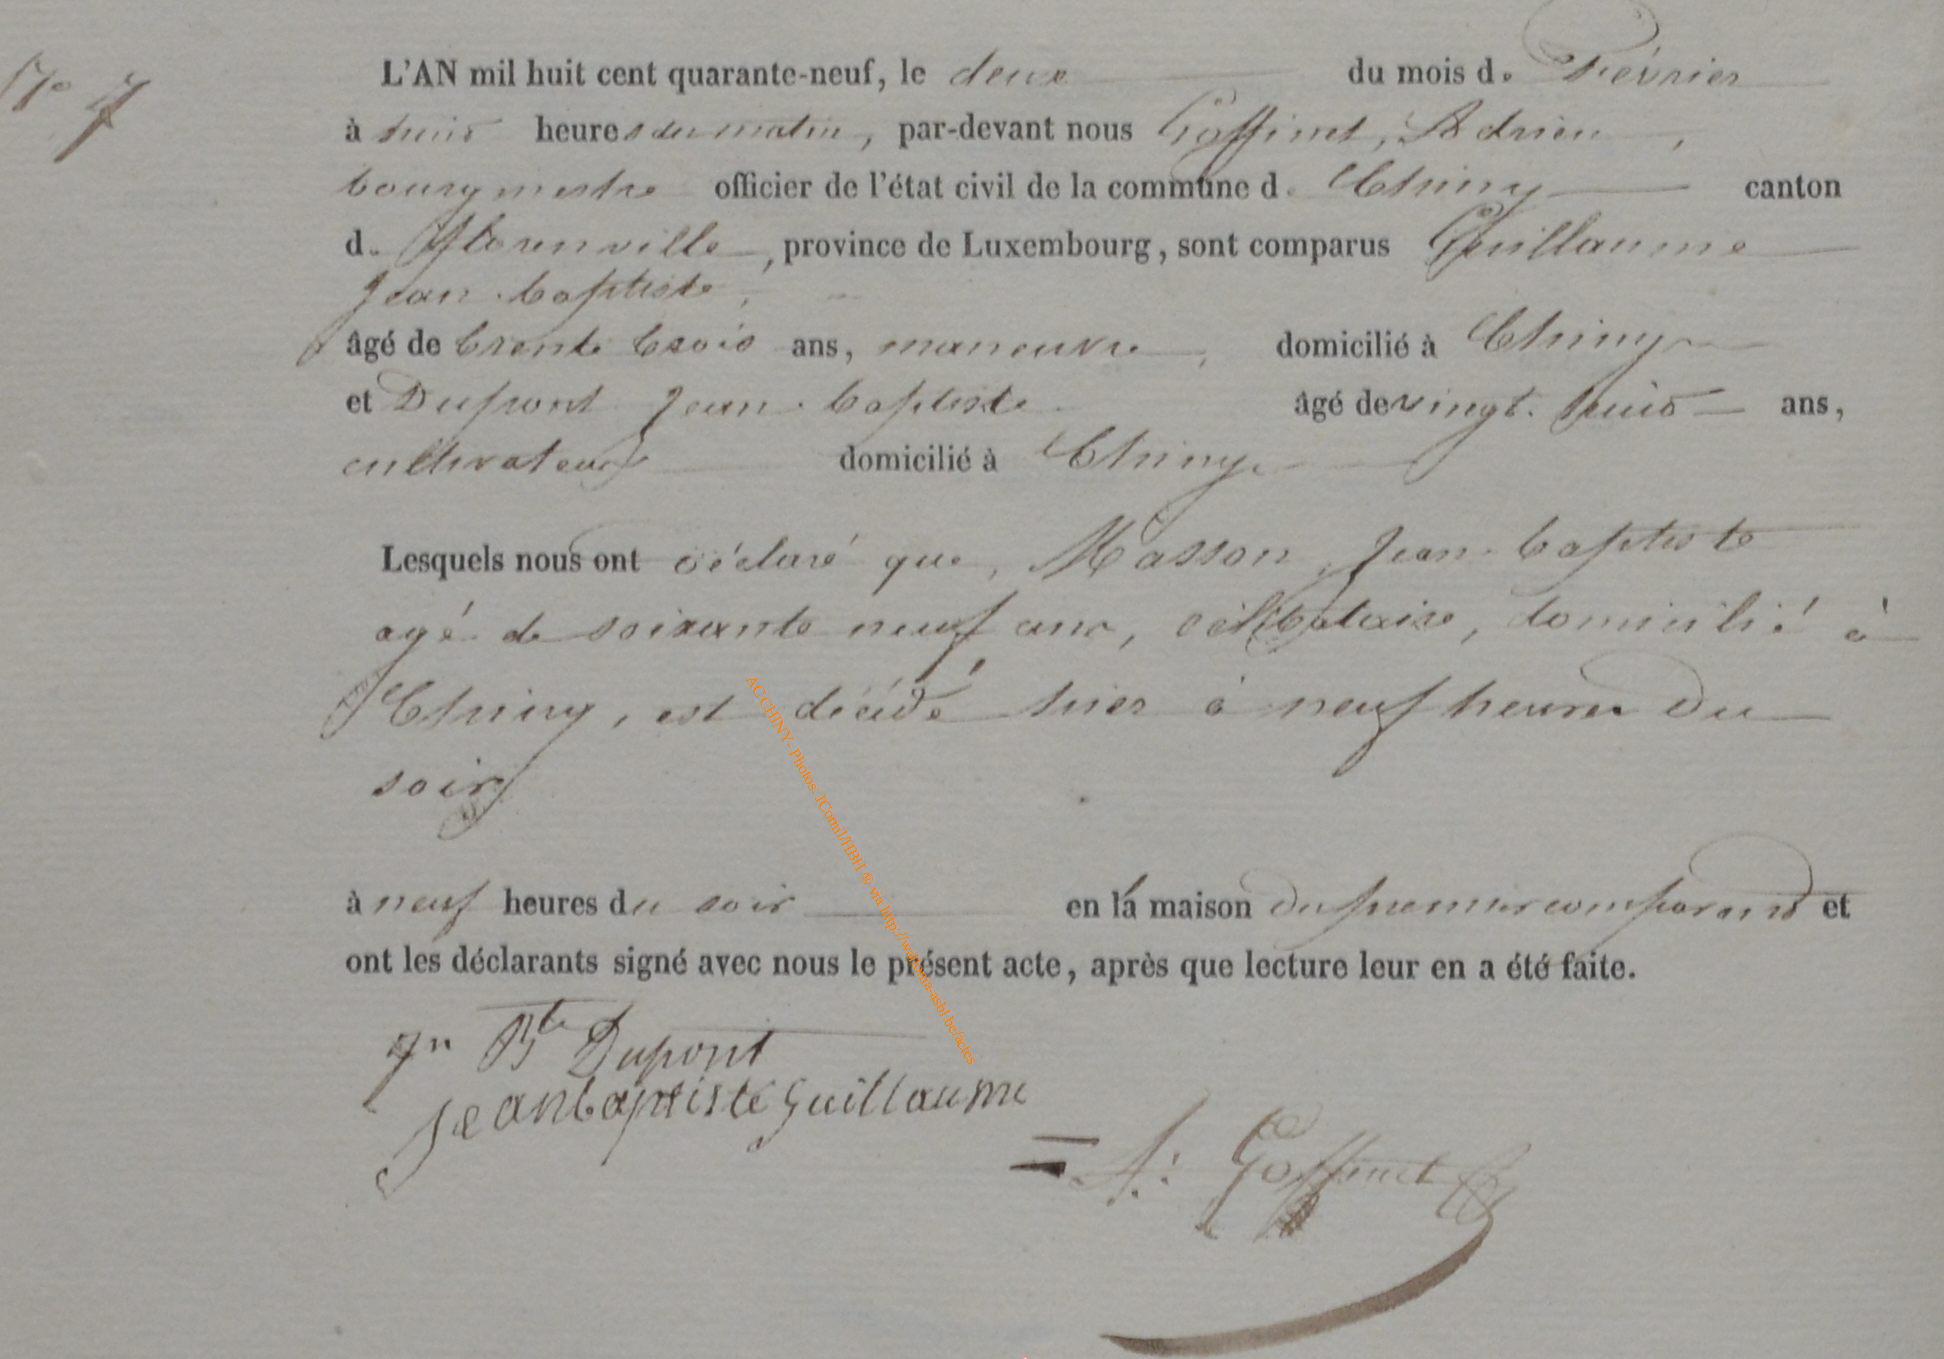 N° 7
L'AN mil huit cent quarante-neuf, le deux du mois de Février
à huit heures du matin, par-devant nous Goffinet, Adrien,
bourgmestre officier de l'état civil de la commune de Chiny canton
de Florenville, province de Luxembourg, sont comparus Guillaume
Jean-baptiste,
âgé de trente trois ans, maneuvre, domicilié à Chiny
et Dupont Jean-baptiste âgé de vingt-huit ans,
cultivateur domicilié à Chiny
Lesquels nous ont déclaré que, Masson, Jean-baptiste
agé de soixante neuf ans, célibataire, domicilié à
Chiny, est décédé hier à neuf heures du
soir
à neuf heures du soir en la maison du premier comparant et
ont les déclarants signé avec nous le présent acte, après que lecture leur en a été faite.
Jn Bte Dupont
Jean baptiste Guillaume
A: Goffinet
AC CHINY- Photos: JCornil/HBH © via http://